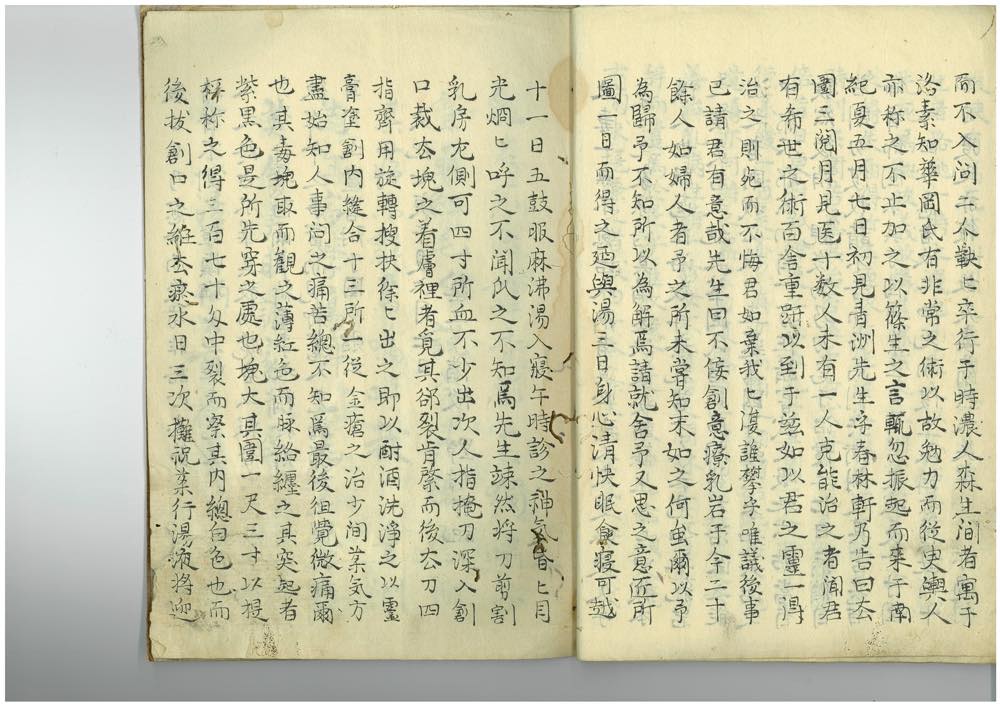 而不入问二人歡々卒行于時濃人森生间者寓于
洛素知華岡氏有非常之術以故勉力而從史與人
亦称之不止加之以篠生之言輒忽振起而来于南
紀夏五月七日初見青洲先生字春林軒乃告曰去
圍三閲月見医十数人未有一人克能治之者闻君
有希世之術百舎重趼以到于兹如以君之靈一得
治之則死而不悔君如棄我々復誰攀字唯議後事
已請君有意哉先生曰不佞創意療乳岩于今二十
餘人如婦人者予之所未嘗知末如之何虽爾以予
為歸予不知所以為解焉請就舎予又思之意匠所
圖一日而得之延與湯三日身心清快眠食寝可越
十一日五鼓服麻沸湯入寝午時診之神気昏々目
光烱々呼之不闻
之不知焉先生竦然将刀剪割
乳房左側可四寸所血不少出次人指掩刀深入創
口裁去塊之着膚裡者覓其郤裂肯綮而後去刀四
指齊用旋轉搜抉徐々出之即以酎酒洗淨之以靈
膏塗創内縫合十三所一從金瘡之治少间薬気方
盡始知人事问之痛苦總不知焉最後徂覺微痛爾
也其毒塊取而觀之薄紅色而脉絡纏之其突起者
紫黒色是所先穿之處也塊大其圍一尺三寸以提
秤称之得三百七十匁中裂而察其内總白色也而
後抜創口之維去瘀水日三次攤祝薬行湯液将迎